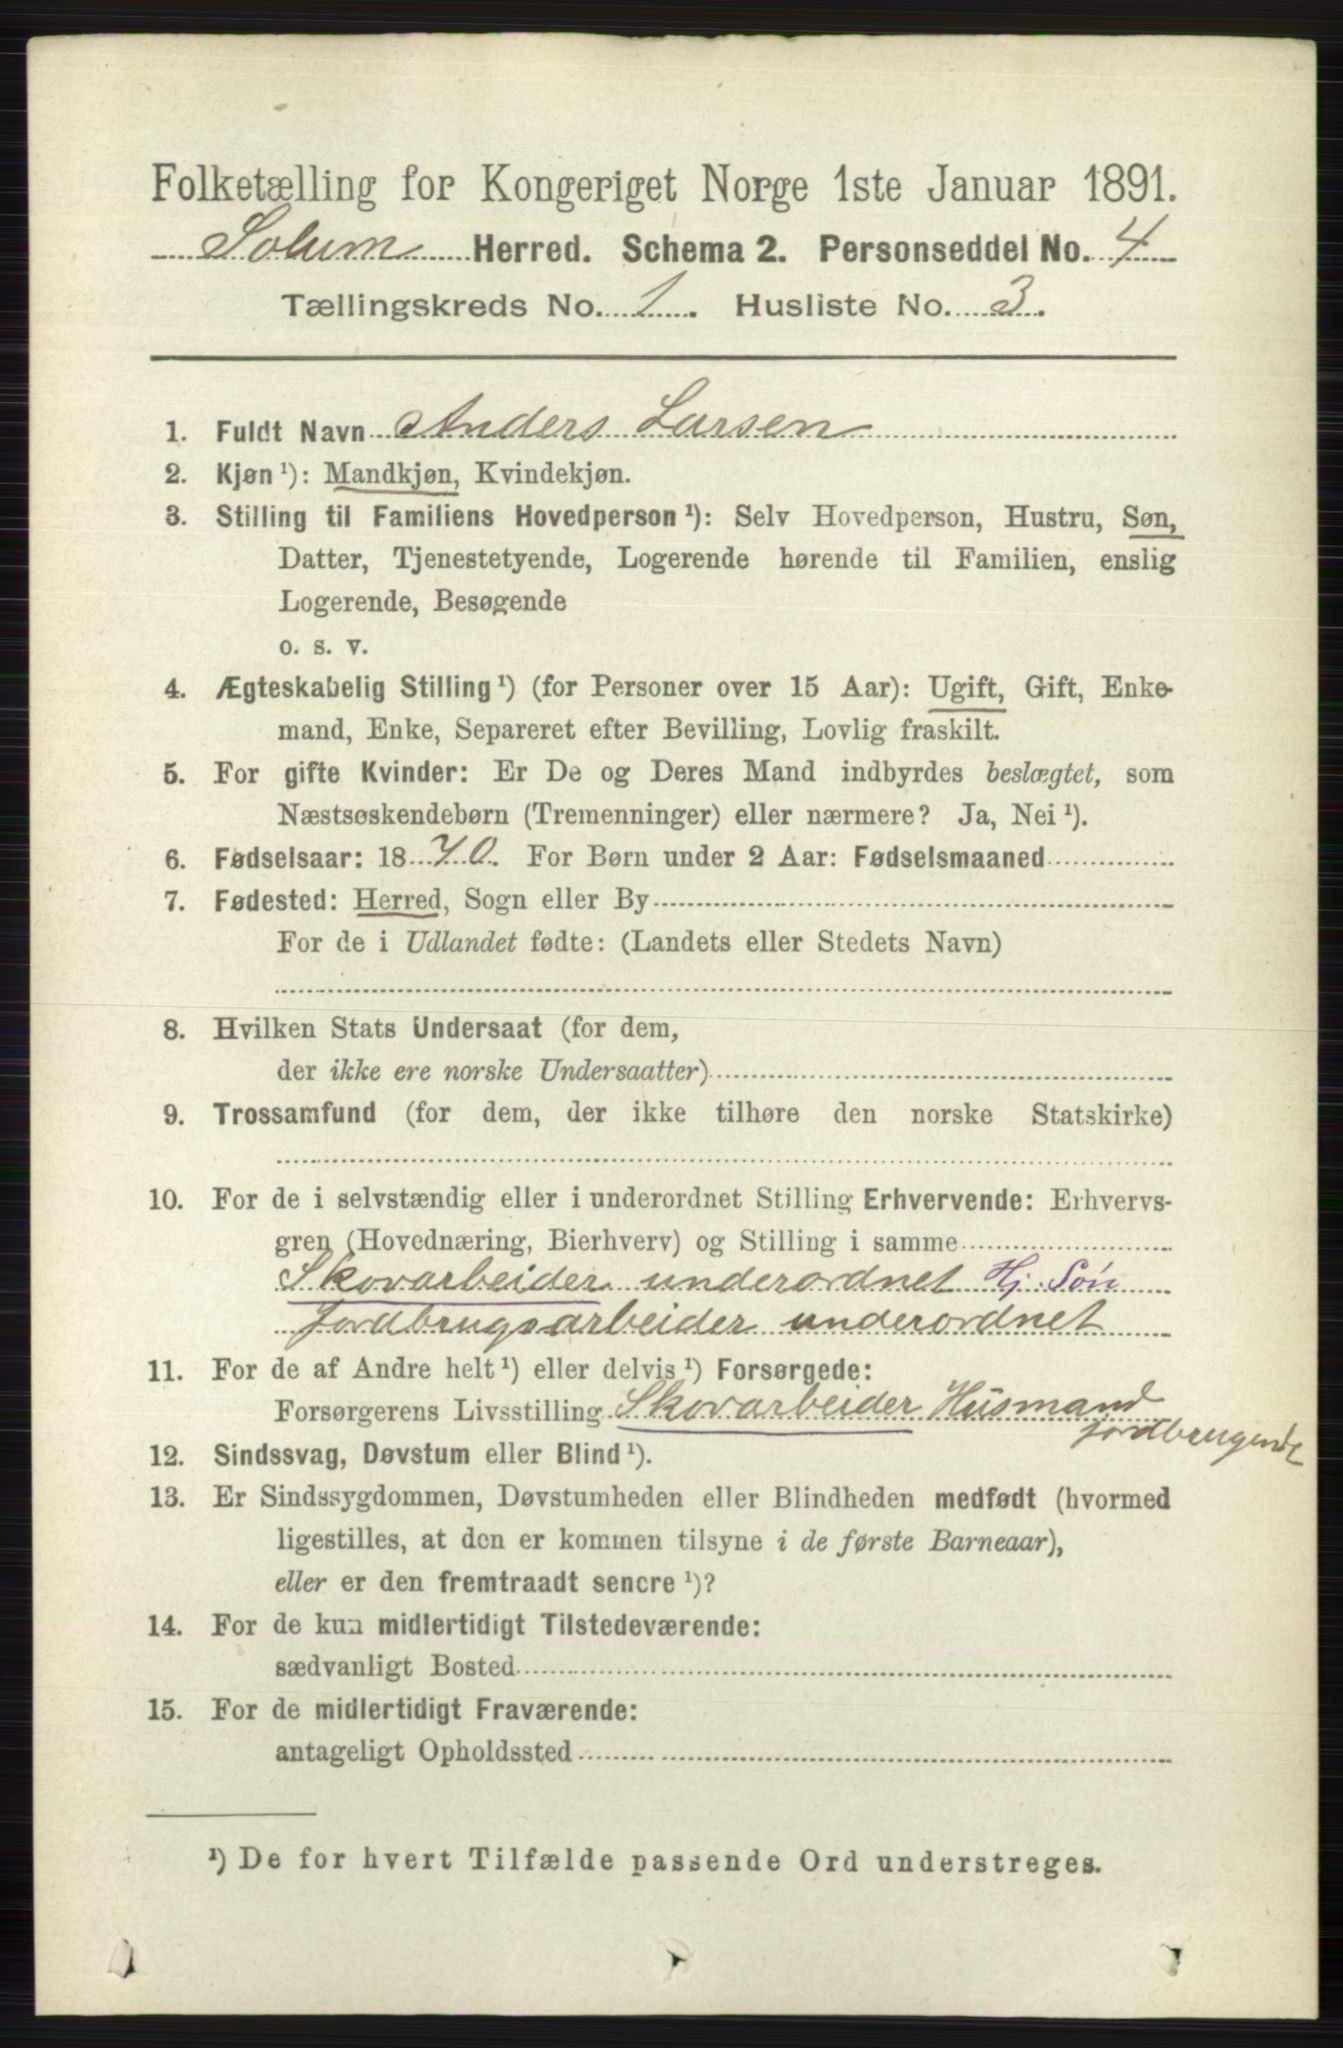 Folketælling for Kongeriget Norge 1ste Januar 1891.
Solum Herred. Schema 2. Personseddel No. 4
Tællingskreds No. 1. Husliste No. 3.
1. Fuldt Navn Anders Larsen
2. Kjøn ¹): Mandkjøn, Kvindekjøn.
3. Stilling til Familiens Hovedperson ¹): Selv Hovedperson, Hustru, Søn,
Datter, Tjenestetyende, Logerende hørende til Familien, enslig
Logerende, Besøgende
o. s. v.
4. Ægteskabelig Stilling ¹) (for Personer over 15 Aar): Ugift, Gift, Enke-
mand, Enke, Separeret efter Bevilling, Lovlig fraskilt.
5. For gifte Kvinder: Er De og Deres Mand indbyrdes beslægtet, som
Næstsøskendebørn (Tremenninger) eller nærmere? Ja, Nei ¹).
6. Fødselsaar: 1870. For Børn under 2 Aar: Fødselsmaaned
7. Fødested: Herred, Sogn eller By
For de i Udlandet fødte: (Landets eller Stedets Navn)
8. Hvilken Stats Undersaat (for dem,
der ikke ere norske Undersaatter)
9. Trossamfund (for dem, der ikke tilhøre den norske Statskirke)
10. For de i selvstændig eller i underordnet Stilling Erhvervende: Erhvervs-
gren (Hovednæring, Bierhverv) og Stilling i samme
Skovarbeider underordnet Hj. Søn
Jordbrugsarbeider underordnet
11. For de af Andre helt ¹) eller delvis ¹) Forsørgede:
Forsørgerens Livsstilling Skovarbeider Husmand
jordbrugende
12. Sindssvag, Døvstum eller Blind ¹).
13. Er Sindssygdommen, Døvstumheden eller Blindheden medfødt (hvormed
ligestilles, at den er kommen tilsyne i de første Barneaar),
eller er den fremtraadt senere ¹)?
14. For de kun midlertidigt Tilstedeværende:
sædvanligt Bosted
15. For de midlertidigt Fraværende:
antageligt Opholdssted
¹) De for hvert Tilfælde passende Ord understreges.